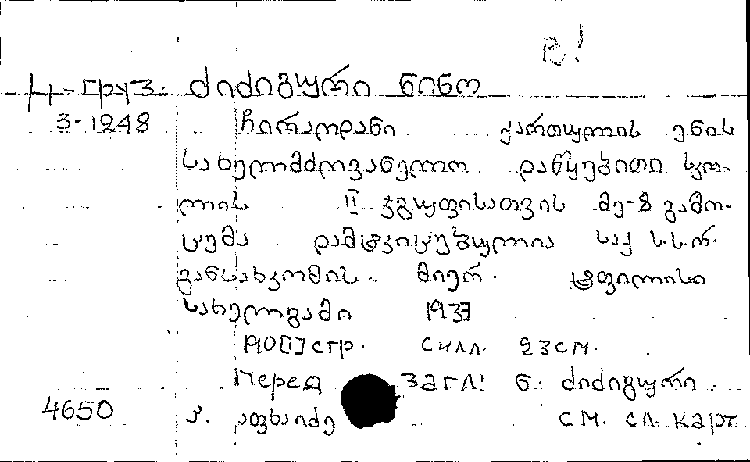 ც!
Ц-груз. ძიძიგური ნინო
3-1248 ჩირაღდანი ქართულის ენის
სახელმძღვანელო დაწყებითი სკო-
ლის II ჯგუფისათვის მე-8 გამო-
ცემა დამტკიცებულია საქ ს.ს.რ.
განსახკომის მიერ. ტფილისი
სახელგამი 1937
[40]стр. силл. 23см.
Перед загл: ნ. ძიძიგური
4650 კ. აფხაიძე см. сл. карт.